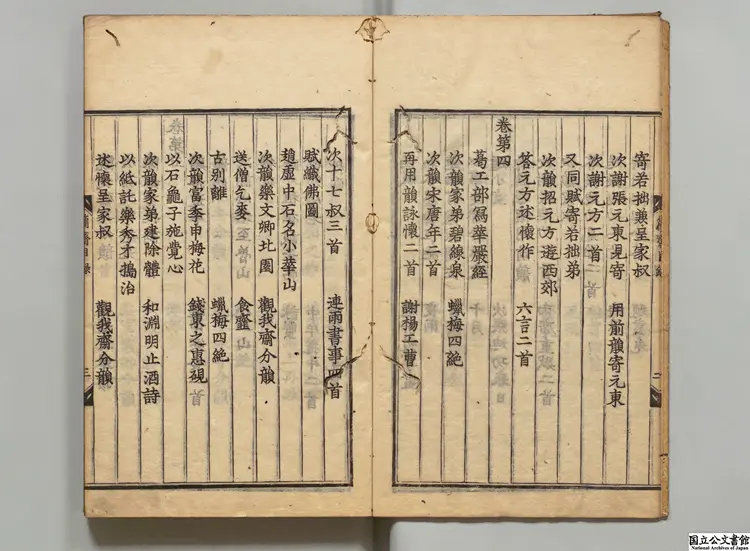 寄若拙兼呈家叔
次謝張元東見寄 用前韻寄元東
次謝元方二首
又同賦寄若拙弟
次韻招元方遊西郊
荅元方述懷作 六言二首
卷第四
葛工部寫華嚴經
次韻家弟碧線泉 蠟梅四絶
次韻宋唐年二首
再用韻詠懷二首 謝揚工曹
次十七叔三首 連雨書事四首
賦織佛圖
趙虛中石名小華山
次韻樂文卿北園 觀我齋分韻
送僧乞麥 食虀
古别離 蠟梅四絶
次韻富季申梅花 錢東之惠硯
以石龜子施覺心
次韻家弟建除體 和淵明止酒詩
以紙託樂秀才擣治
述懷呈家叔 觀我齋分韻
三
国立公文書館
National Archives of Japan